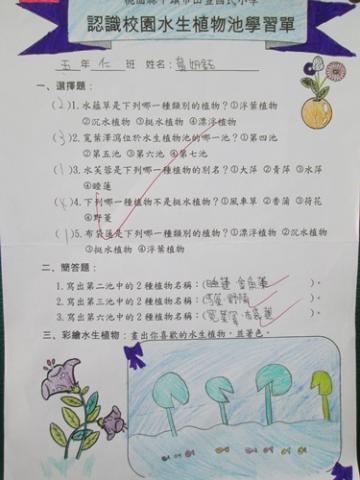 認識校園水生植物池學習單
五年仁班 姓名:
一、選擇題:
(2)1.水蘊草是下列哪一種類別的植物?①浮葉植物
②沉水植物 ③挺水植物 ④漂浮植物
(3)2.寬葉澤瀉位於水生植物池的哪一池?①第四池
②第五池 ③第六池 ④第七池
(1)3.水芙蓉是下列哪一種植物的別名?①大萍 ②青萍 ③水萍
④睡蓮
(4)4.下列哪一種植物不是挺水植物?①風車草 ②香蒲 ③荷花
④野菱
(1)5.布袋蓮是下列哪一種類別的植物?①漂浮植物 ②沉水植物
③挺水植物 ④浮葉植物
二、簡答題:
1.寫出第二池中的2種植物名稱:(睡蓮 )。
2.寫出第三池中的2種植物名稱:( )。
3.寫出第六池中的2種植物名稱:( )。
三、彩繪水生植物:畫出你喜歡的水生植物,並著色。